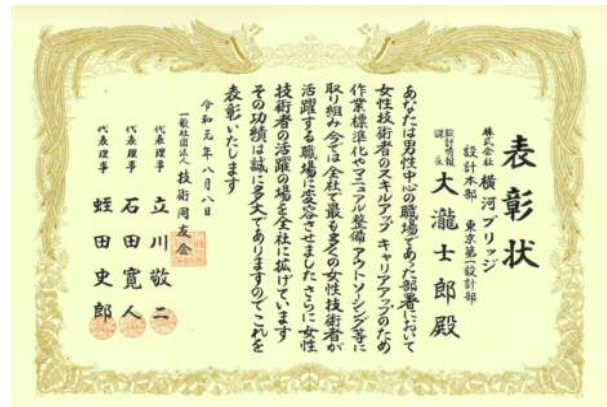 表彰状
株式会社 横河ブリッジ
設計本部 東京第一設計部
設計情報
課長
大瀧士郎殿
あなたは男性中心の職場であった部署において
女性技術者のスキルアップ キャリアアップのため
作業標準化やマニュアル整備 アウトソーシング等に
取り組み今では全社で最も多くの女性技術者が
活躍する職場に変容させました さらに女性
技術者の活躍の場を全社に拡げています
その功績は誠に多大でありますのでこれを
表彰いたします
令和元年八月八日
一般社団法人 技術同友会
代表理事 立川敬二
代表理事 石田寛人
代表理事 蛭田史郎